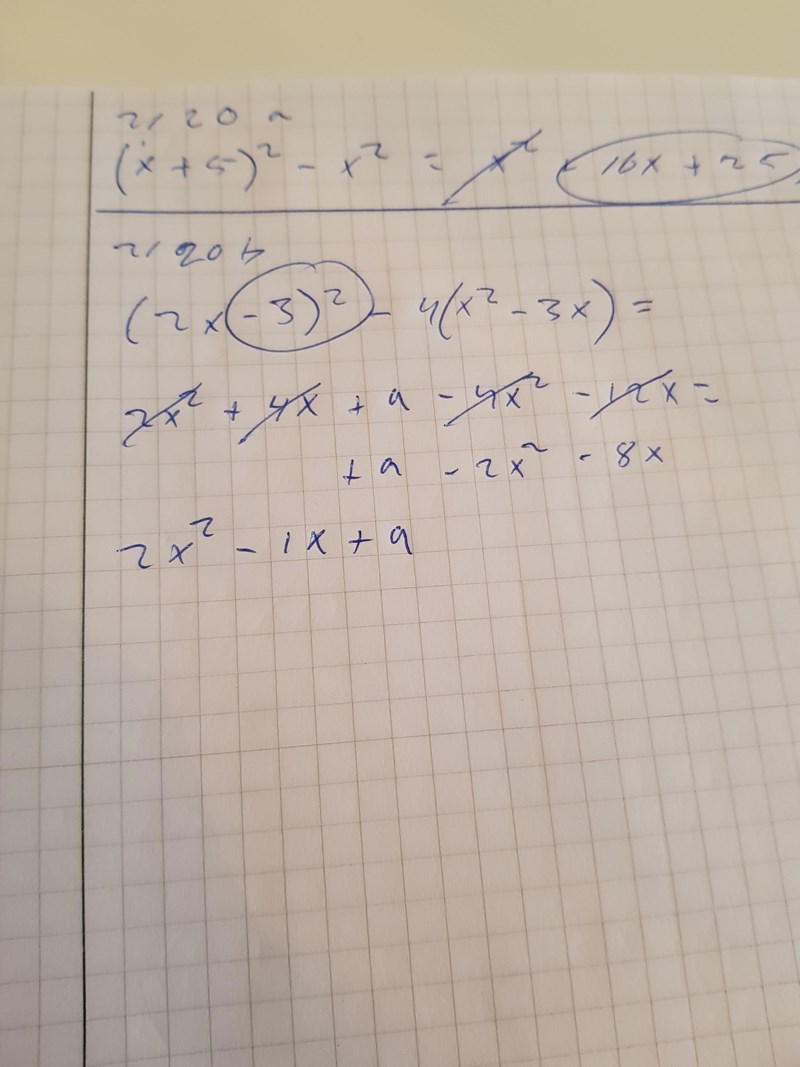 2120 a
(x + 5)² - x² = x² + 10x + 25
2120 b
(2x - 3)² - 4(x² - 3x) =
2x² + 4x + 9 - 4x² - 12x =
+ 9 - 2x² - 8x
2x² - 1x + 9